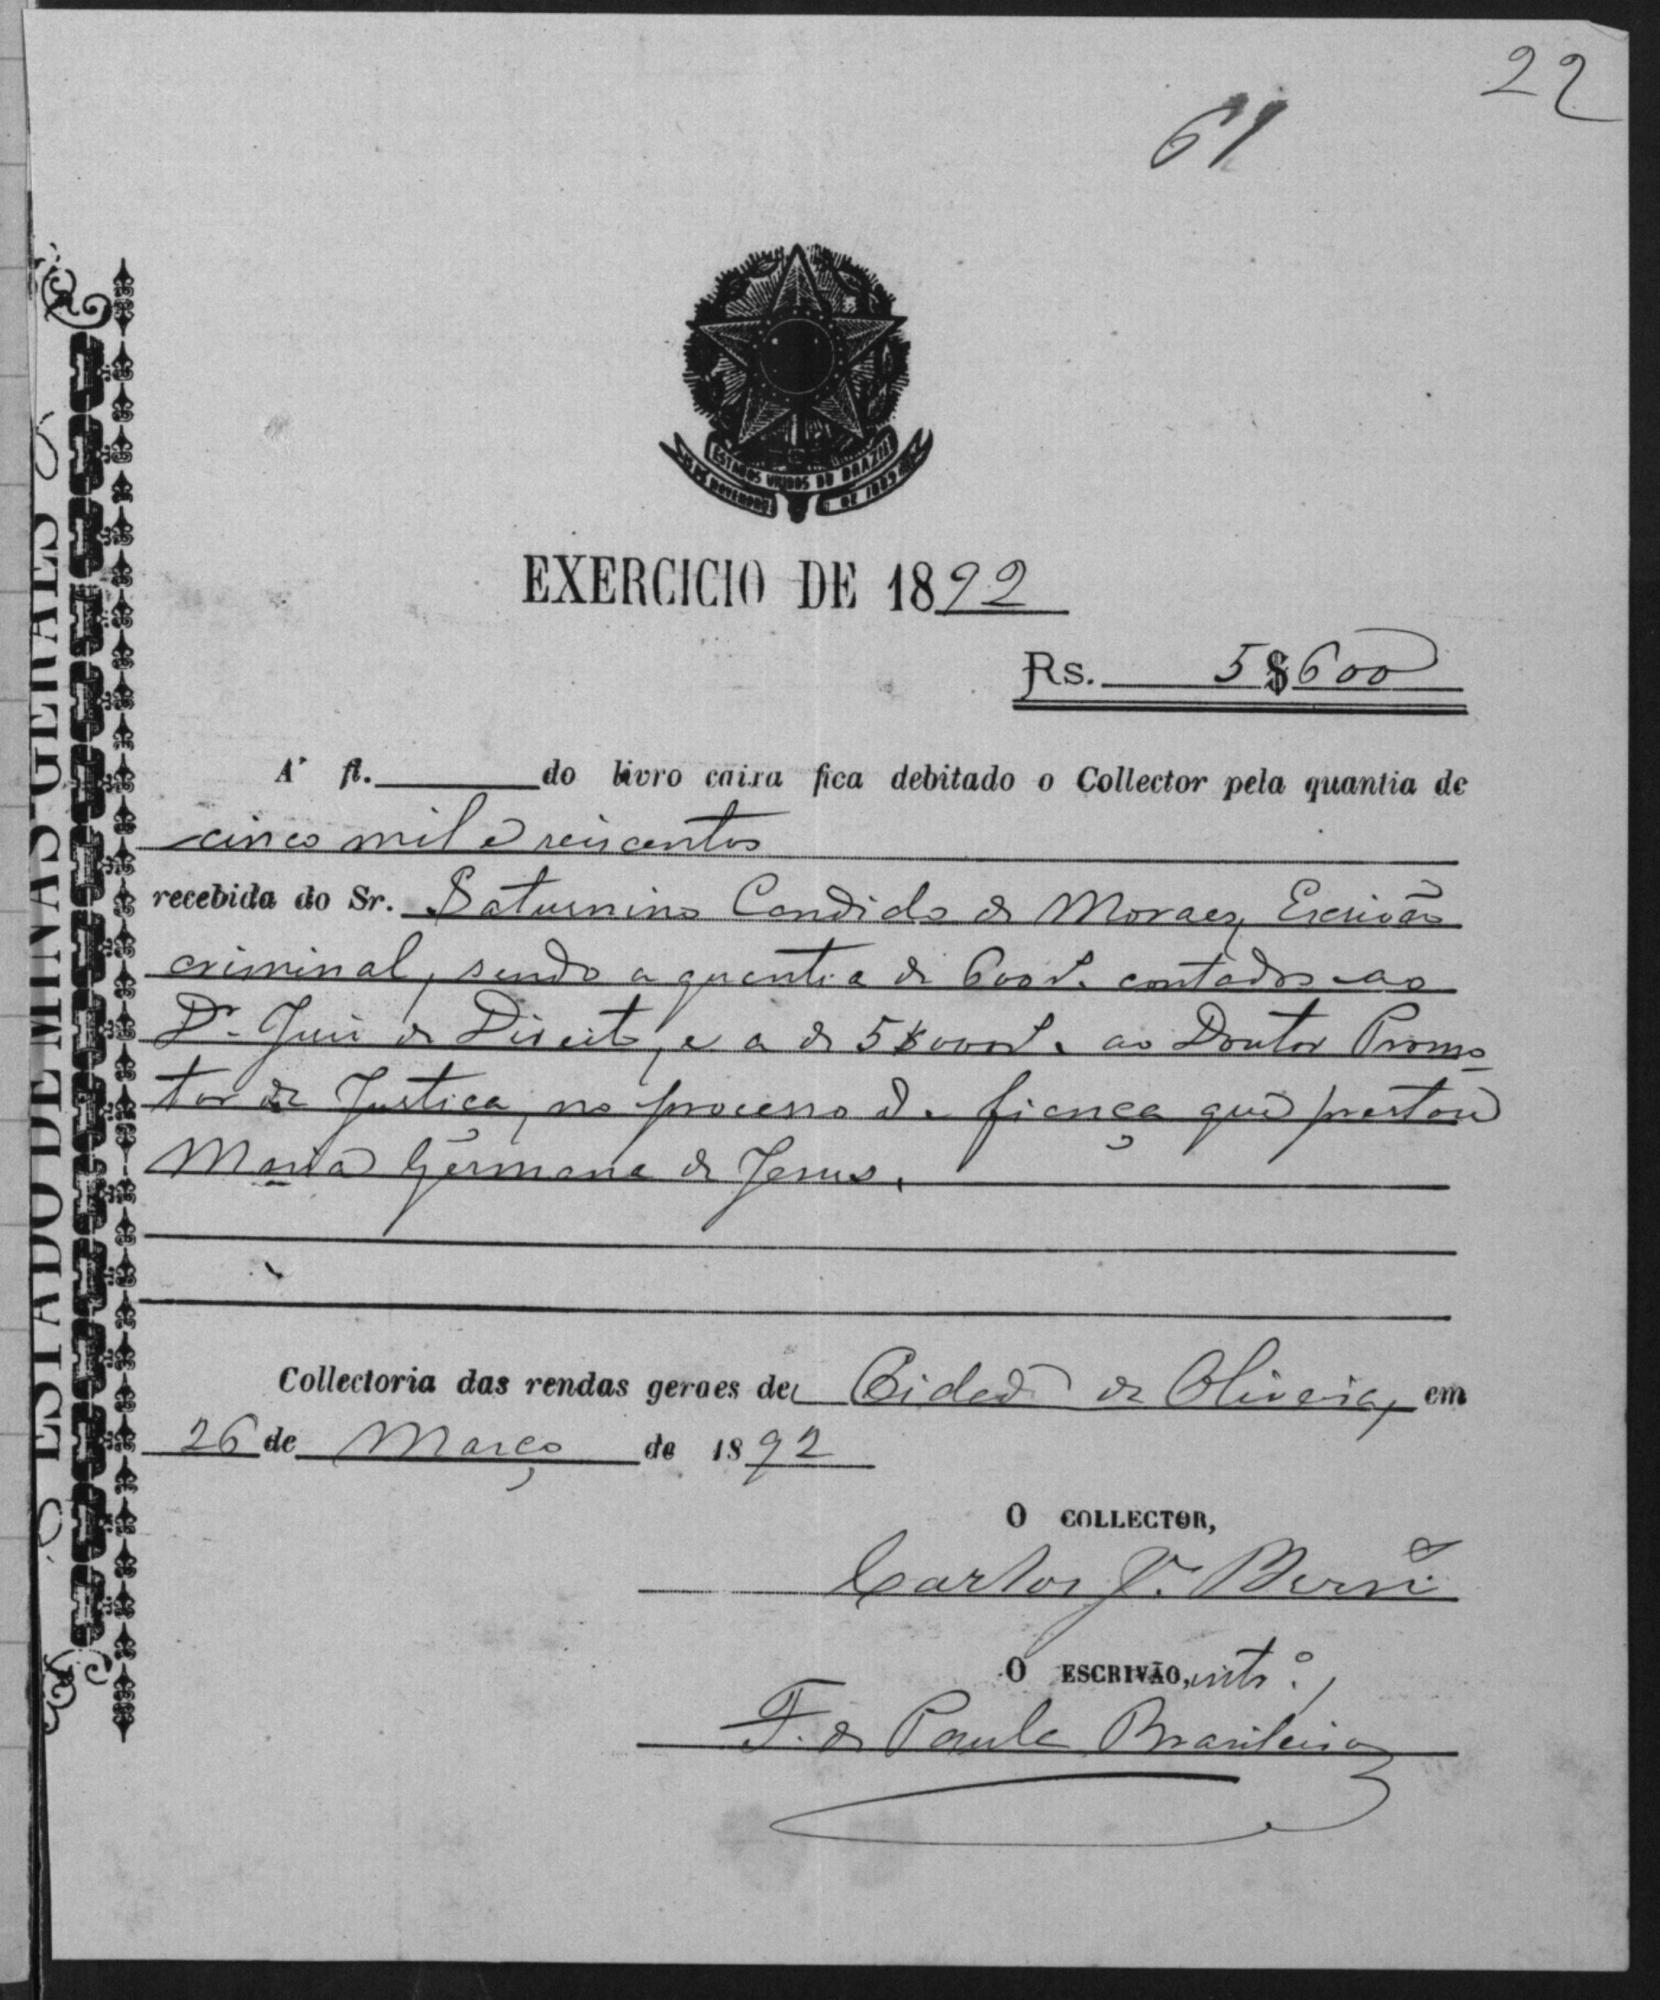 22
61
ESTADO DE MINAS GERAES
ESTADOS UNIDOS DO BRAZIL
15 NOVEMBRO DE 1889
EXERCICIO DE 1892
Rs. 5$600
A' fl. do livro caixa fica debitado o Collector pela quantia de
cinco mil e seiscentos
recebida do Sr. Saturnino Candido de Moraes, Escrivão
criminal, sendo a quantia de 600rs. contados ao
Dr. Juiz de Direito, e a de 5$000rs. ao Doutor Promo
tor de Justiça, no processo de fiança que prestou
Maria Germana de Jesus.
Collectoria das rendas geraes de Cidade de Oliveira, em
26 de Março de 1892
O COLLECTOR,
Carlos J.
O ESCRIVÃO, into.,
F. de Paula Brasileiro